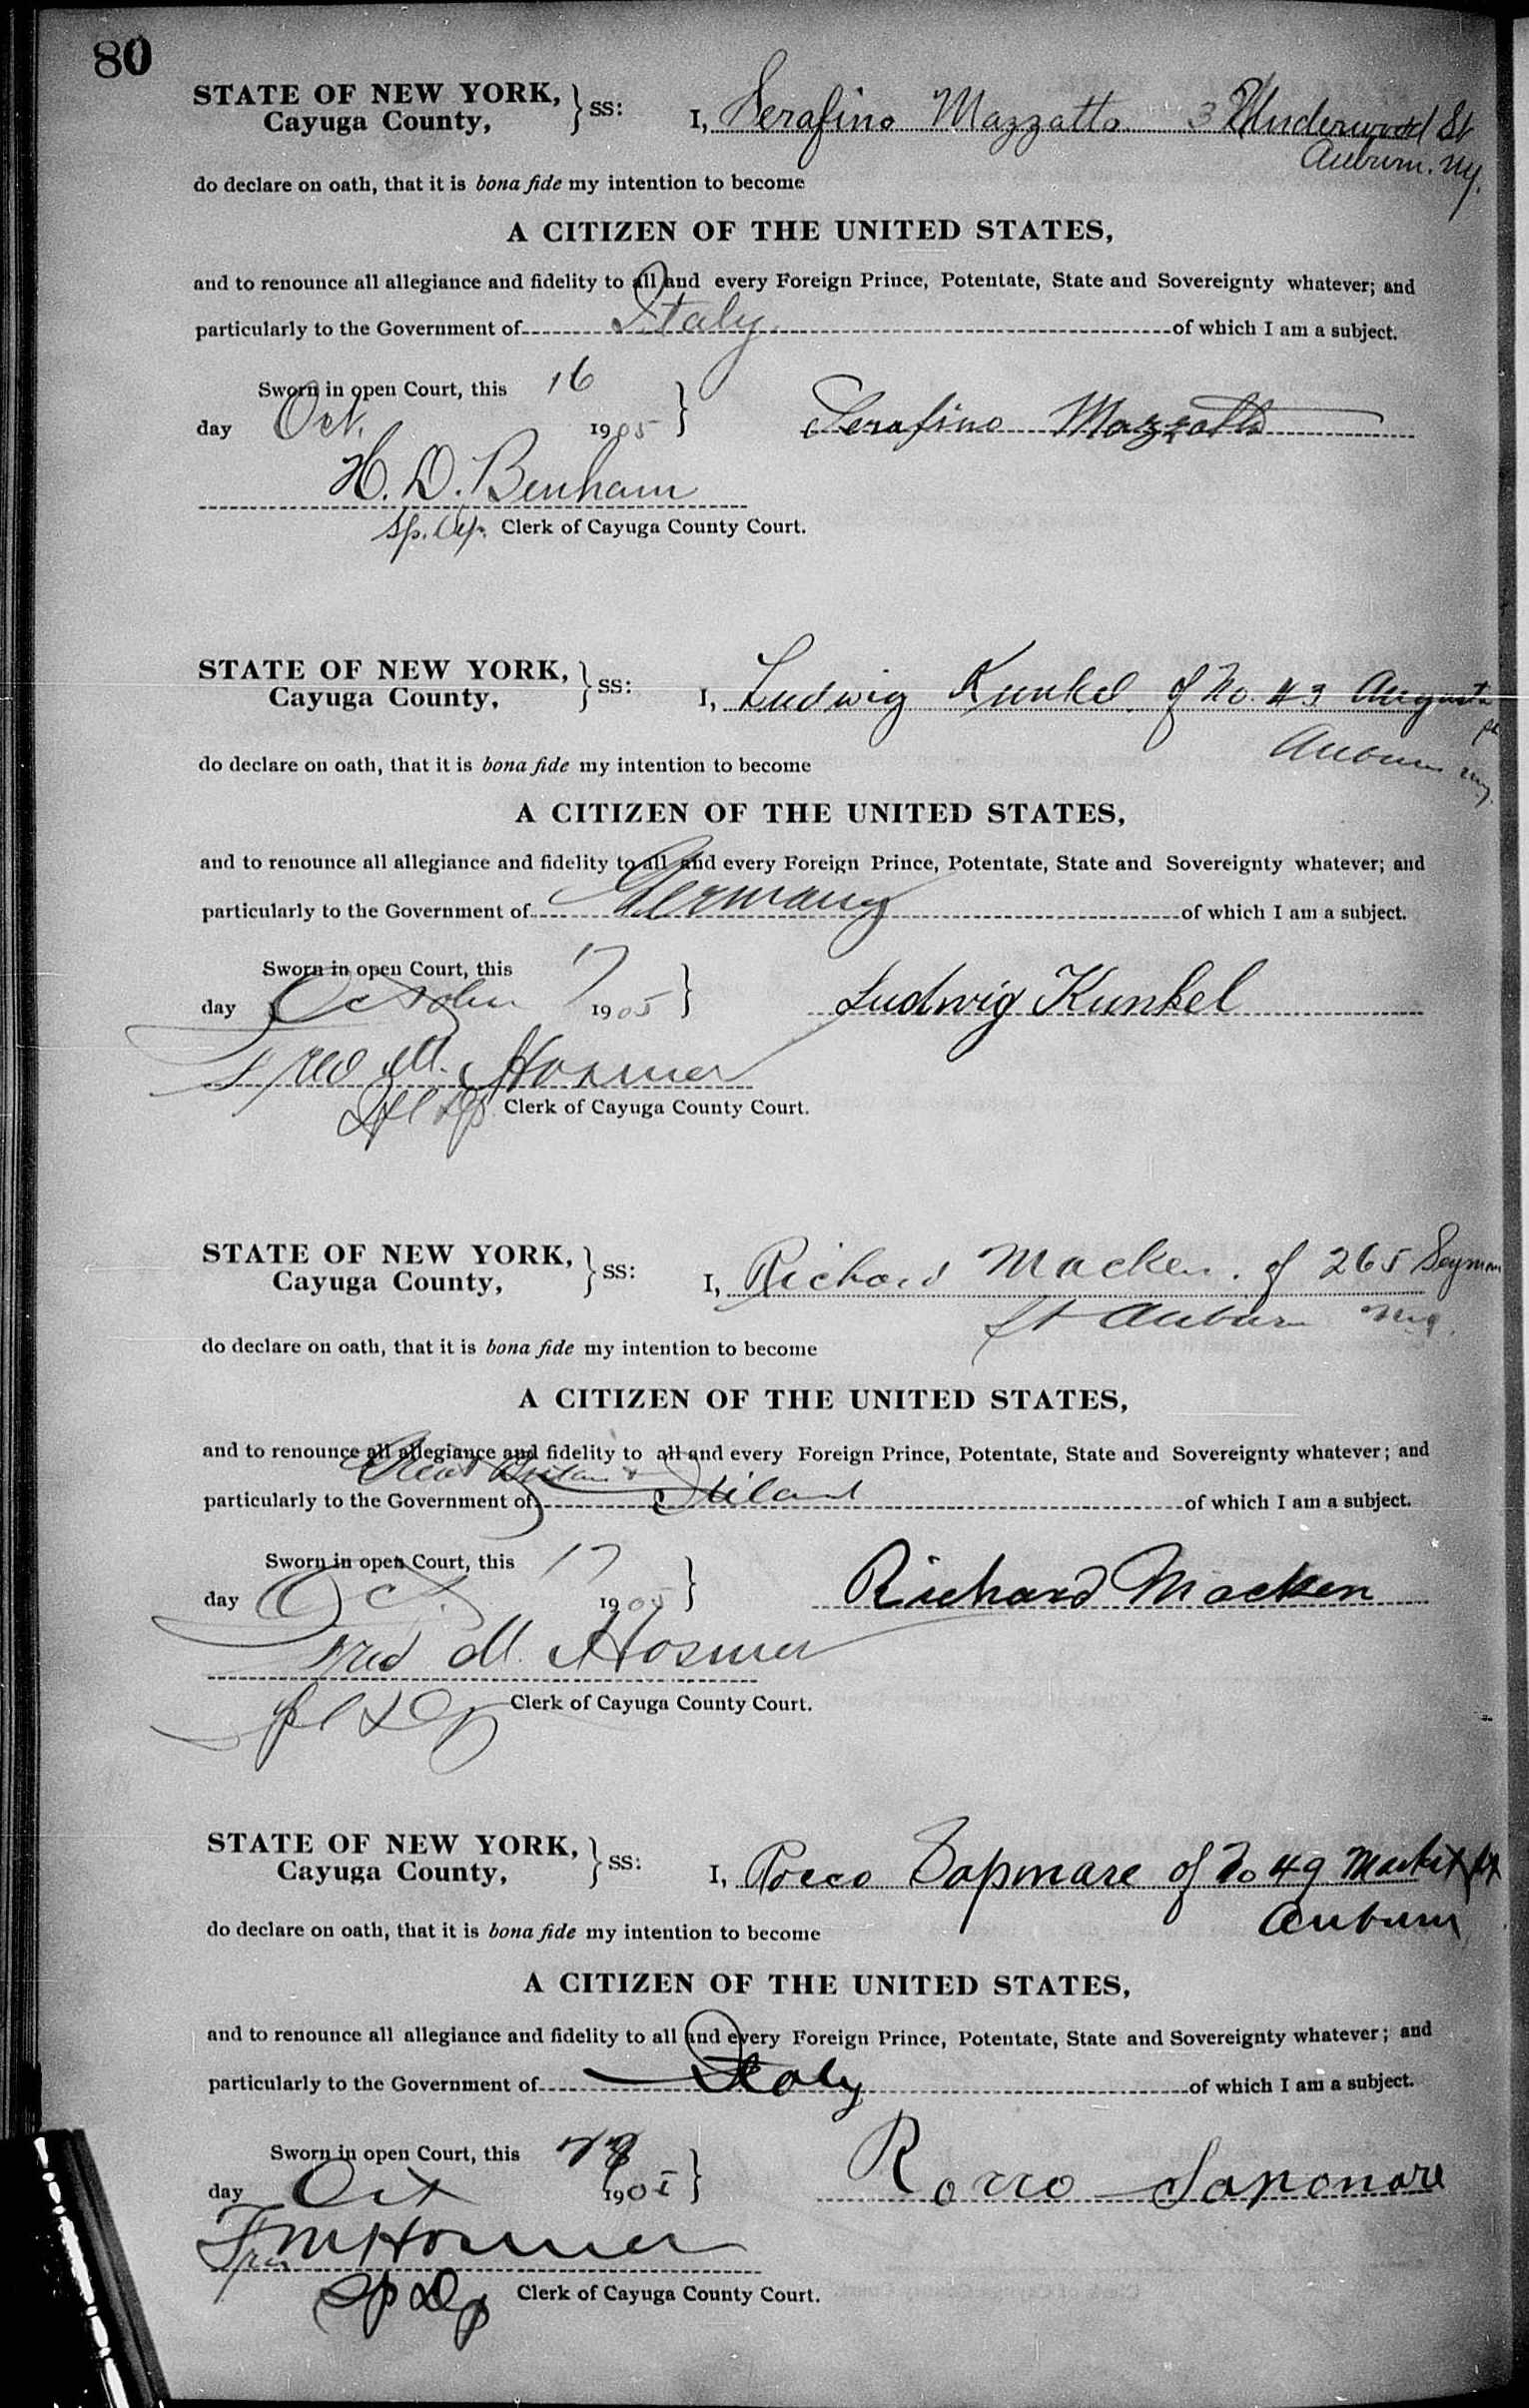 80
STATE OF NEW YORK, } ss:
Cayuga County,
I, Serafino Mazzatto 3 Underwood St
Auburn. N.Y.
do declare on oath, that it is bona fide my intention to become
A CITIZEN OF THE UNITED STATES,
and to renounce all allegiance and fidelity to all and every Foreign Prince, Potentate, State and Sovereignty whatever; and
particularly to the Government of Italy of which I am a subject.
Sworn in open Court, this 16
day Oct. 1905 } Serafino Mazzatto
H. D. Benham
Sp. Dep. Clerk of Cayuga County Court.
STATE OF NEW YORK, } ss:
Cayuga County,
I, Ludwig Kunkel. of No. 43 Augusta
St
Auburn N.Y.
do declare on oath, that it is bona fide my intention to become
A CITIZEN OF THE UNITED STATES,
and to renounce all allegiance and fidelity to all and every Foreign Prince, Potentate, State and Sovereignty whatever; and
particularly to the Government of Germany of which I am a subject.
Sworn in open Court, this 17
day October 1905 } Ludwig Kunkel
Fred M. Hosmer
Spl Dp Clerk of Cayuga County Court.
STATE OF NEW YORK, } ss:
Cayuga County,
I, Richard Macken. of 265 Seymour
St Auburn N.Y.
do declare on oath, that it is bona fide my intention to become
A CITIZEN OF THE UNITED STATES,
and to renounce all allegiance and fidelity to all and every Foreign Prince, Potentate, State and Sovereignty whatever; and
Great Britain &
particularly to the Government of Ireland of which I am a subject.
Sworn in open Court, this 17
day Oct. 1905 } Richard Macken
Fred M. Hosmer
Spl Dp Clerk of Cayuga County Court.
STATE OF NEW YORK, } ss:
Cayuga County,
I, Rocco Sapmare of No 49 Market St
Auburn
do declare on oath, that it is bona fide my intention to become
A CITIZEN OF THE UNITED STATES,
and to renounce all allegiance and fidelity to all and every Foreign Prince, Potentate, State and Sovereignty whatever; and
particularly to the Government of Italy of which I am a subject.
Sworn in open Court, this
day Oct 1905 } Rocco Saponare
Fred M Hosmer
Sp Dp Clerk of Cayuga County Court.